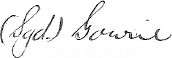 (Sgd.) Gowrie